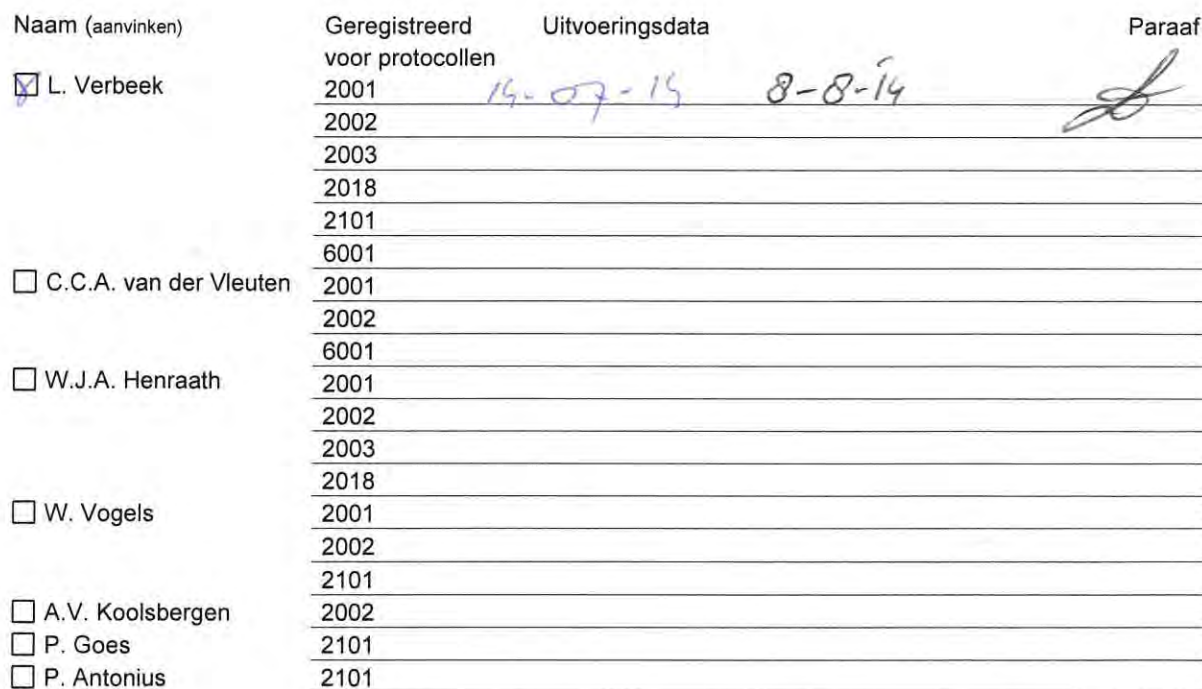 Naam (aanvinken) Geregistreerd Uitvoeringsdata Paraaf
voor protocollen
L. Verbeek 2001 14-07-14 8-8-14
2002
2003
2018
2101
6001
C.C.A. van der Vleuten 2001
2002
6001
W.J.A. Henraath 2001
2002
2003
2018
W. Vogels 2001
2002
2101
A.V. Koolsbergen 2002
P. Goes 2101
P. Antonius 2101